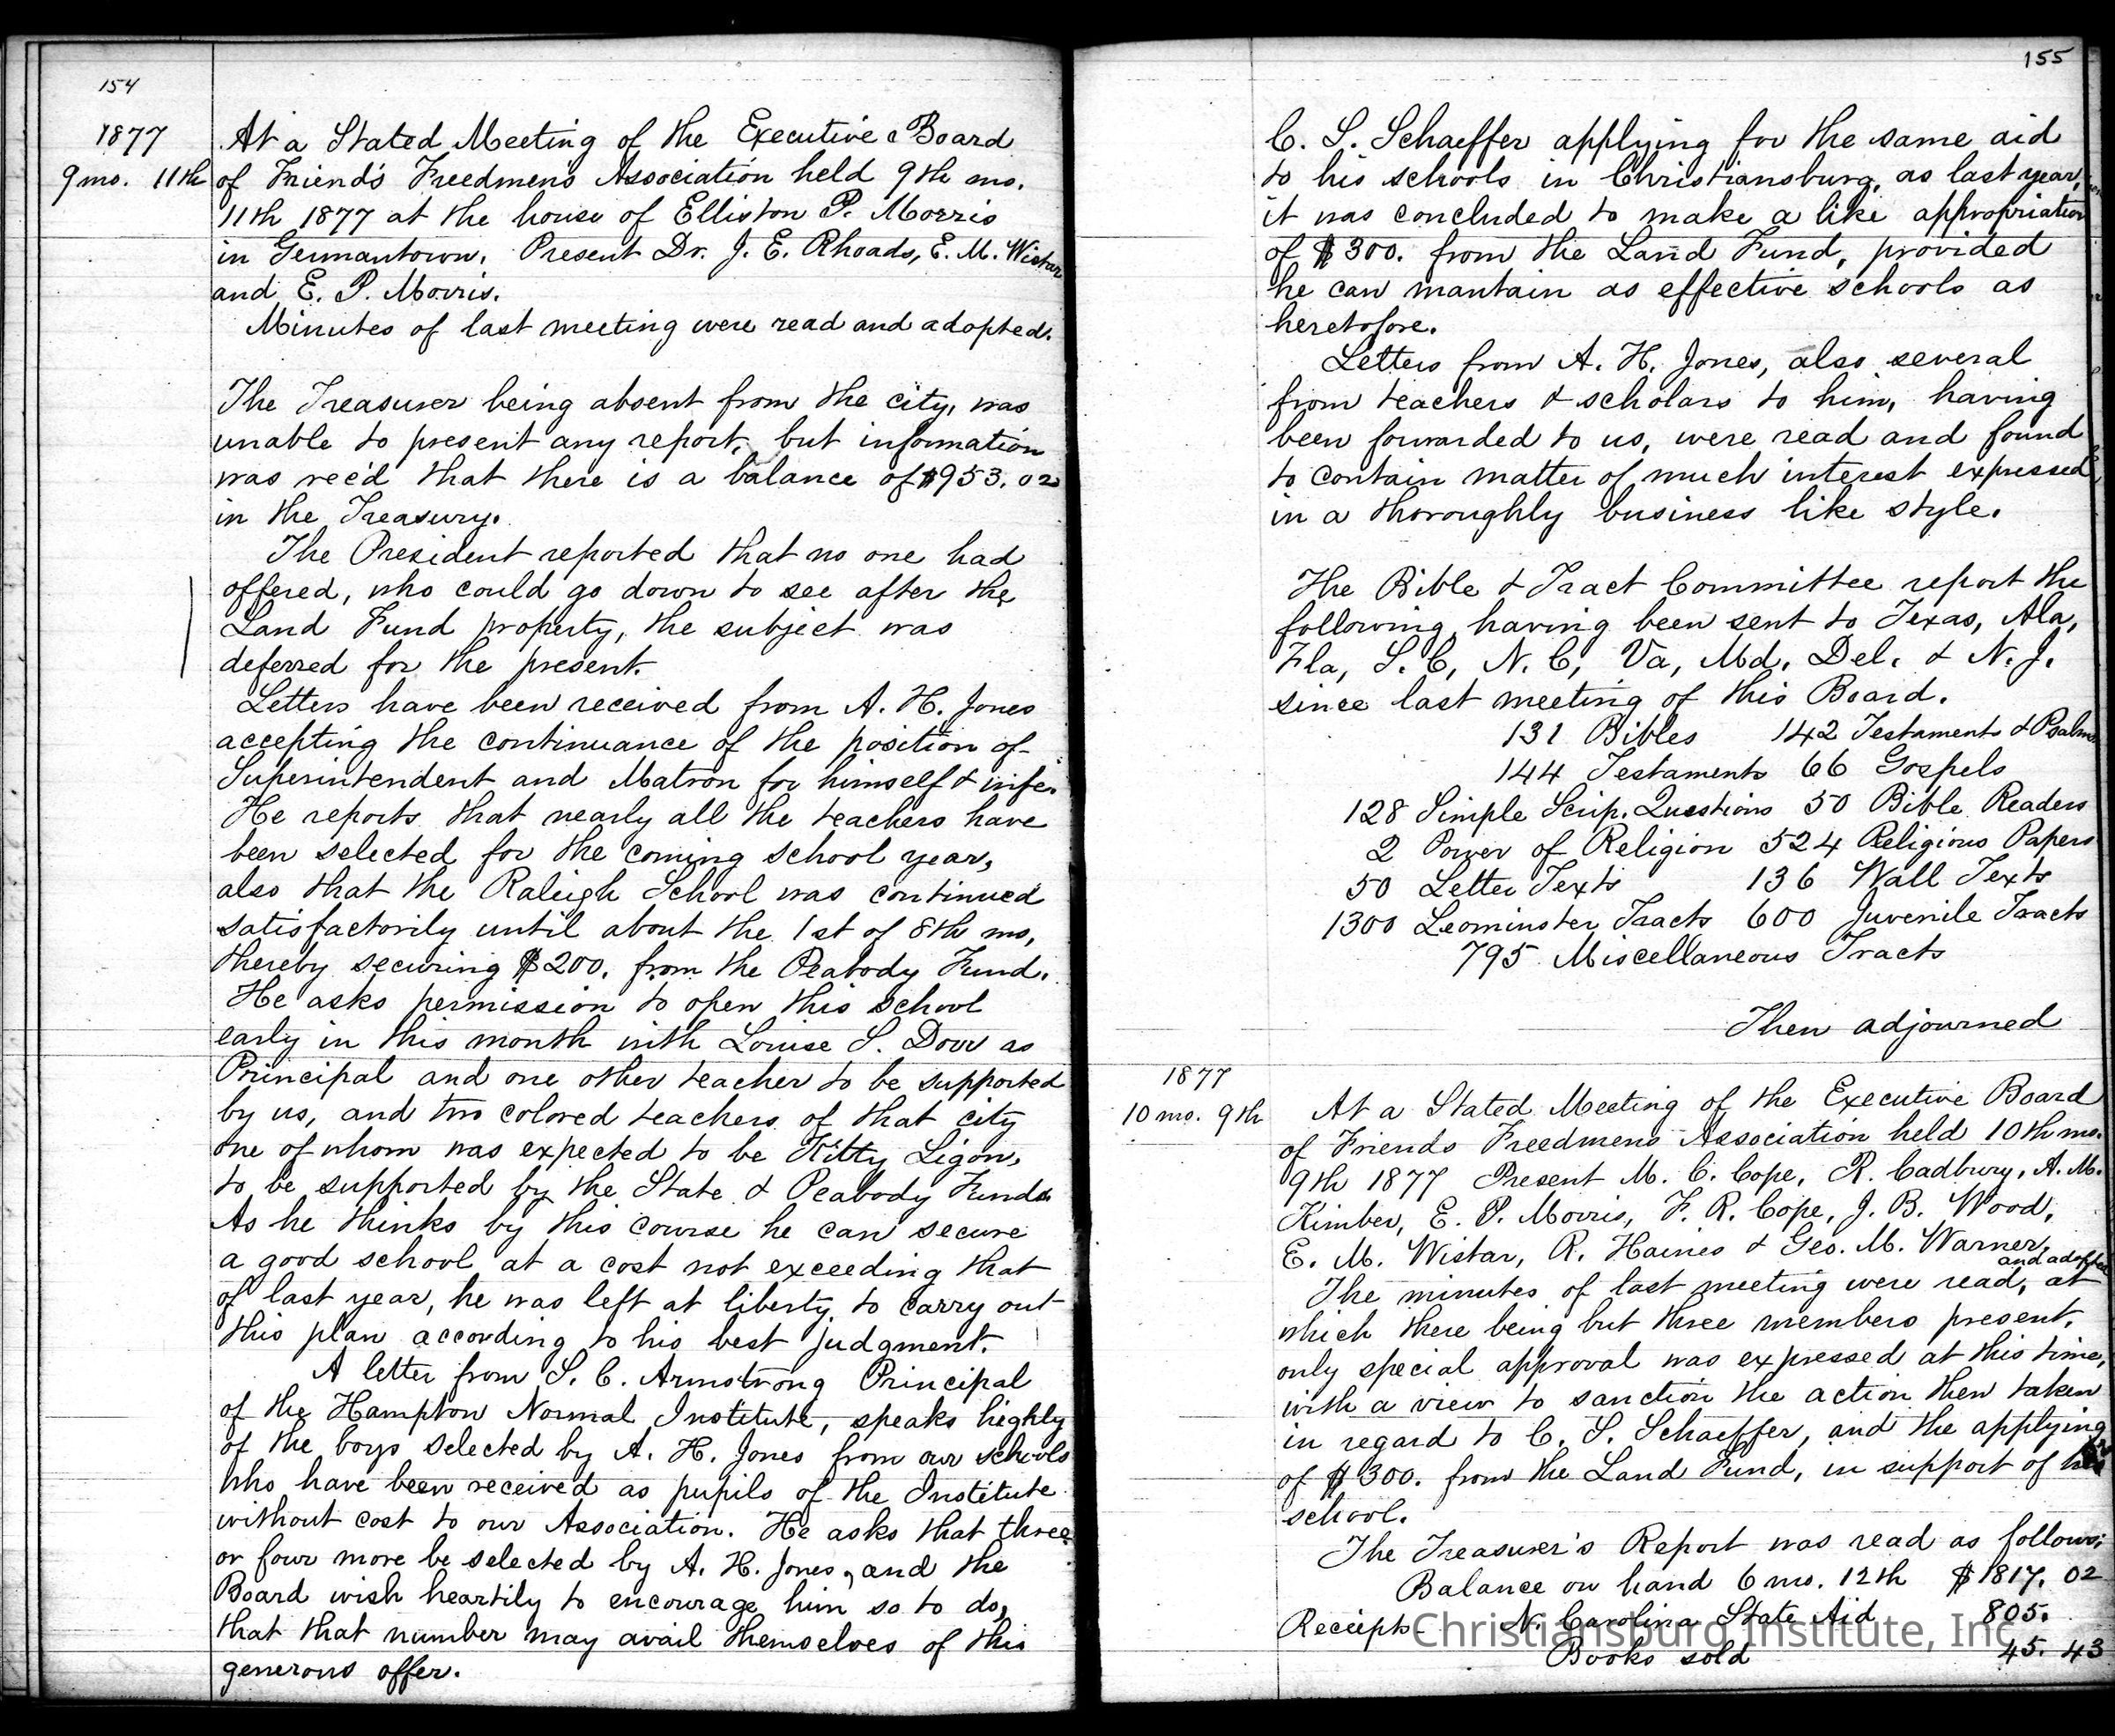 154
1877
9 mo. 11th
At a Stated Meeting of the Executive Board
of Friend's Freedmen's Association held 9th mo.
11th 1877 at the house of Elliston P. Morris
in Germantown. Present Dr. J. E. Rhoads, E. M. Wistar
and E. P. Morris.
Minutes of last meeting were read and adopted.
The Treasurer being absent from the city, was
unable to present any report, but information
was rec'd that there is a balance of $953.02
in the Treasury.
The President reported that no one had
offered, who could go down to see after the
Land Fund property, the subject was
deferred for the present.
Letters have been received from A. H. Jones
accepting the continuance of the position of
Superintendent and Matron for himself & wife.
He reports that nearly all the teachers have
been selected for the coming school year,
also that the Raleigh School was continued
satisfactorily until about the 1st of 8th mo,
thereby securing $200. from the Peabody Fund.
He asks permission to open this school
early in this month with Louise S. Dorr as
Principal and one other teacher to be supported
by us, and two colored teachers of that city
one of whom was expected to be Kitty Ligon,
to be supported by the State & Peabody Funds
As he thinks by this course he can secure
a good school at a cost not exceeding that
of last year, he was left at liberty to carry out
this plan according to his best judgment.
A letter from S. C. Armstrong Principal
of the Hampton Normal Institute, speaks highly
of the boys selected by A. H. Jones from our schools
who have been received as pupils of the Institute
without cost to our Association. He asks that three
or four more be selected by A. H. Jones, and the
Board wish heartily to encourage him so to do,
that that number may avail themselves of this
generous offer.
155
C. S. Schaeffer applying for the same aid
to his schools in Christiansburg, as last year,
it was concluded to make a like appropriation
of $300. from the Land Fund, provided
he can mantain as effective schools as
heretofore.
Letters from A. H. Jones, also several
from teachers & scholars to him, having
been forwarded to us, were read and found
to contain matter of much interest expressed
in a thoroughly business like style.
The Bible & Tract Committee report the
following having been sent to Texas, Ala,
Fla, S. C, N. C, Va, Md. Del. & N. J.
since last meeting of this Board.
131 Bibles 142 Testaments & Psalms
144 Testaments 66 Gospels
128 Simple Scrip. Questions 50 Bible Readers
2 Power of Religion 524 Religious Papers
50 Letter Texts 136 Wall Texts
1300 Leominster Tracts 600 Juvenile Tracts
795 Miscellaneous Tracts
Then adjourned
1877
10 mo. 9th
At a Stated Meeting of the Executive Board
of Friends Freedmens Association held 10th mo.
9th 1877 Present M. C. Cope, R. Cadbury, A. M.
Kimber, E. P. Morris, F. R. Cope, J. B. Wood,
E. M. Wistar, R. Haines & Geo. M. Warner,
and adopted
The minutes of last meeting were read, at
which there being but three members present,
only special approval was expressed at this time,
with a view to sanction the action then taken
in regard to C. S. Schaeffer, and the applying
of $300. from the Land Fund, in support of his
school.
The Treasurer's Report was read as follows:
Balance on hand 6 mo. 12th $1817.02
Receipts N. Carolina State Aid 805.
Books sold 45.43
Christiansburg Institute, Inc